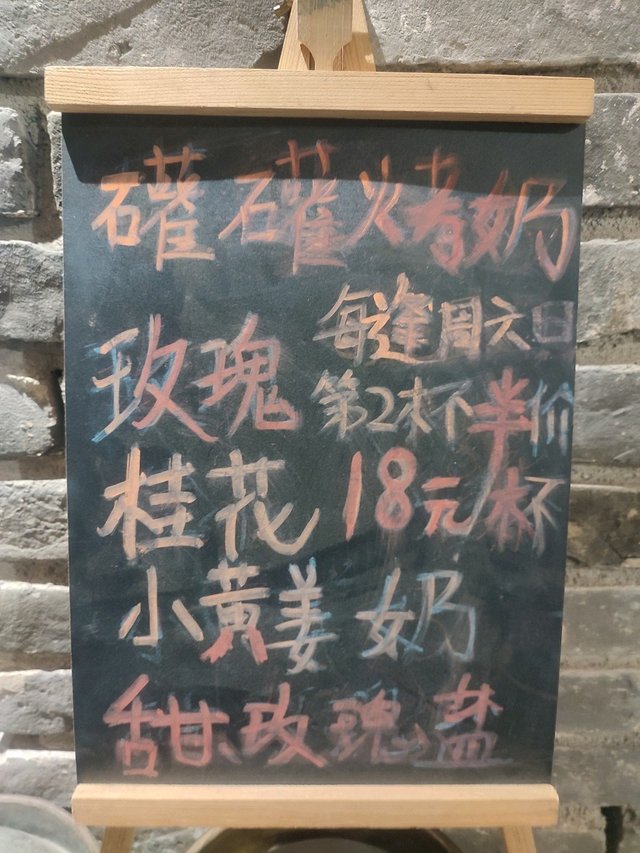 礶礶烤奶
玫瑰
每逢周六日
第2杯半价
桂花
18元/杯
小黄姜奶
甜玫瑰盐